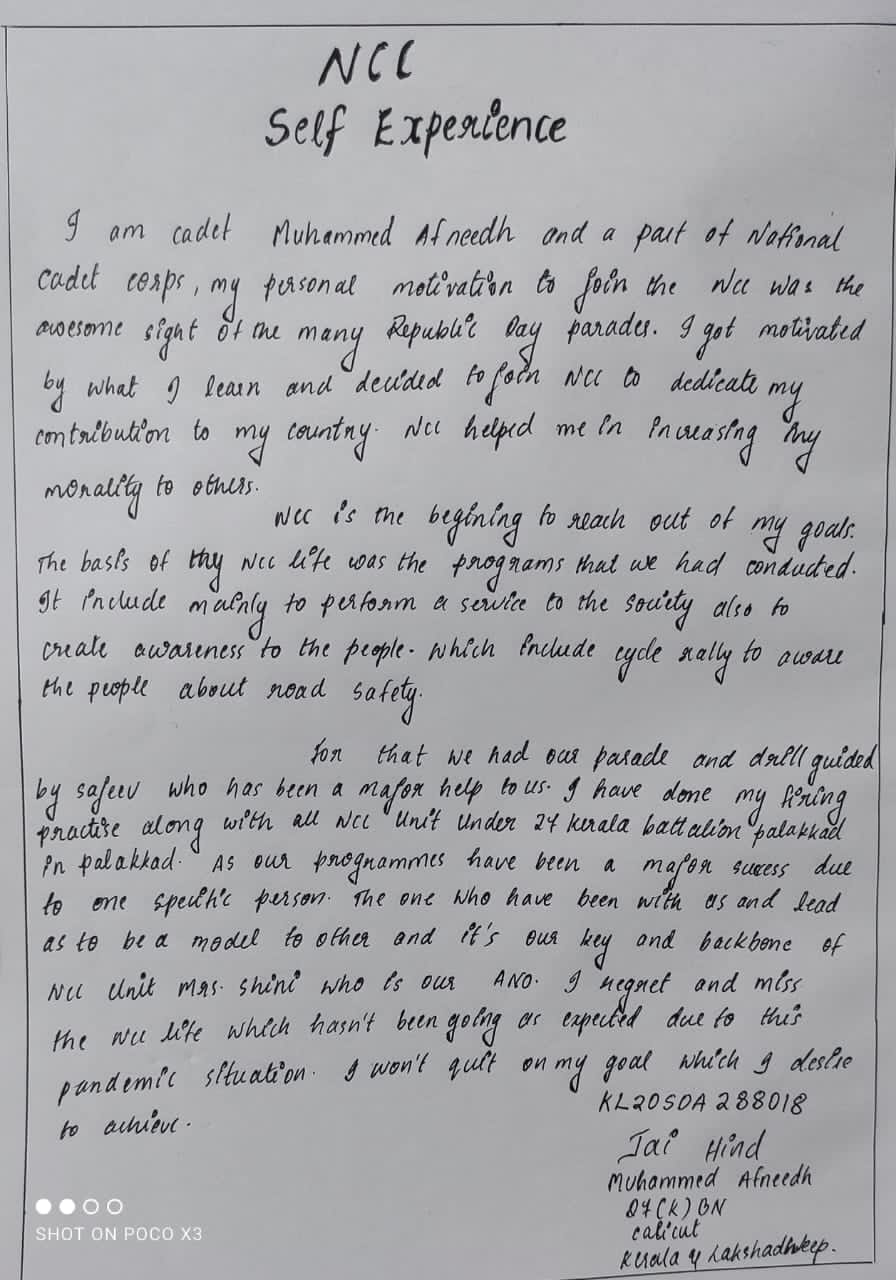 NCC
Self Experience
I am cadet Muhammed Afneedh and a part of National
cadet corps, my personal motivation to join the NCC was the
awesome sight of the many Republic Day parades. I got motivated
by what I learn and decided to join NCC to dedicate my
contribution to my country. NCC helped me in increasing my
morality to others.
NCC is the begining to reach out of my goals.
The basis of my NCC life was the programs that we had conducted.
It include mainly to perform a service to the society also to
create awareness to the people. which include cycle rally to aware
the people about road safety.
for that we had our parade and drill guided
by safeev who has been a major help to us. I have done my firing
practise along with all NCC Unit under 27 kerala battalion palakkad
in palakkad. As our programmes have been a major sucess due
to one specific person. The one who have been with us and lead
as to be a model to other and it's our key and backbone of
NCC Unit Mrs. Shini who is our ANO. I regret and miss
the NCC life which hasn't been going as expected due to this
pandemic situation. I won't quit on my goal which I desire
to achieve.
KL20SDA 288018
Jai Hind
Muhammed Afneedh
27(K) BN
calicut
Kerala & Lakshadweep.
SHOT ON POCO X3